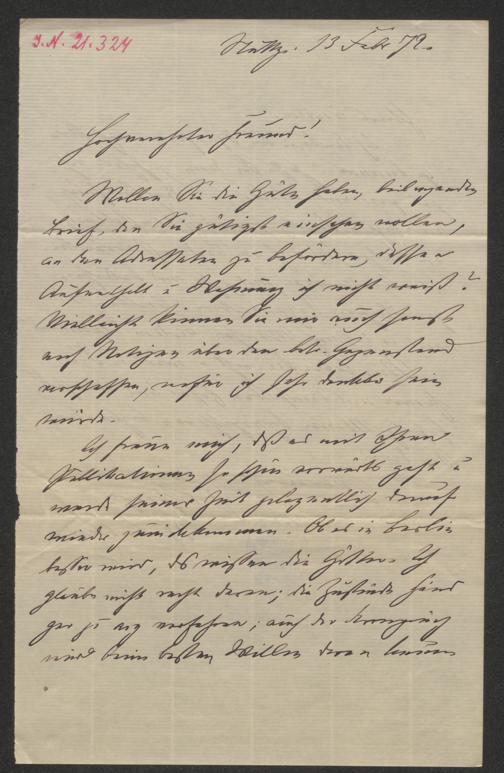 J.N. 21.324
Stuttg. 13 Febr 72.
Hochverehrter Freund!
Wollen Sie die Güte haben, beiliegenden
Brief, den Sie gütigst einsehen wollen,
an den Adressaten zu befördern, dessen
Aufenthalt u Wohnung ich nicht weiß?
Vielleicht können Sie mir auch sonst
noch Notizen über den betr. Gegenstand
verschaffen, wofür ich sehr dankbar sein
würde.
Ich freue mich, daß es mit Ihren
Publikationen so schön vorwärts geht u
werde seiner Zeit gelegentlich darauf
wieder zurückkommen. Ob es in Berlin
besser wird, das wissen die Götter. Ich
glaube nicht recht daran; die Zustände sind
gar zu arg verfahren; auch der
wird beim besten Willen daran kaum